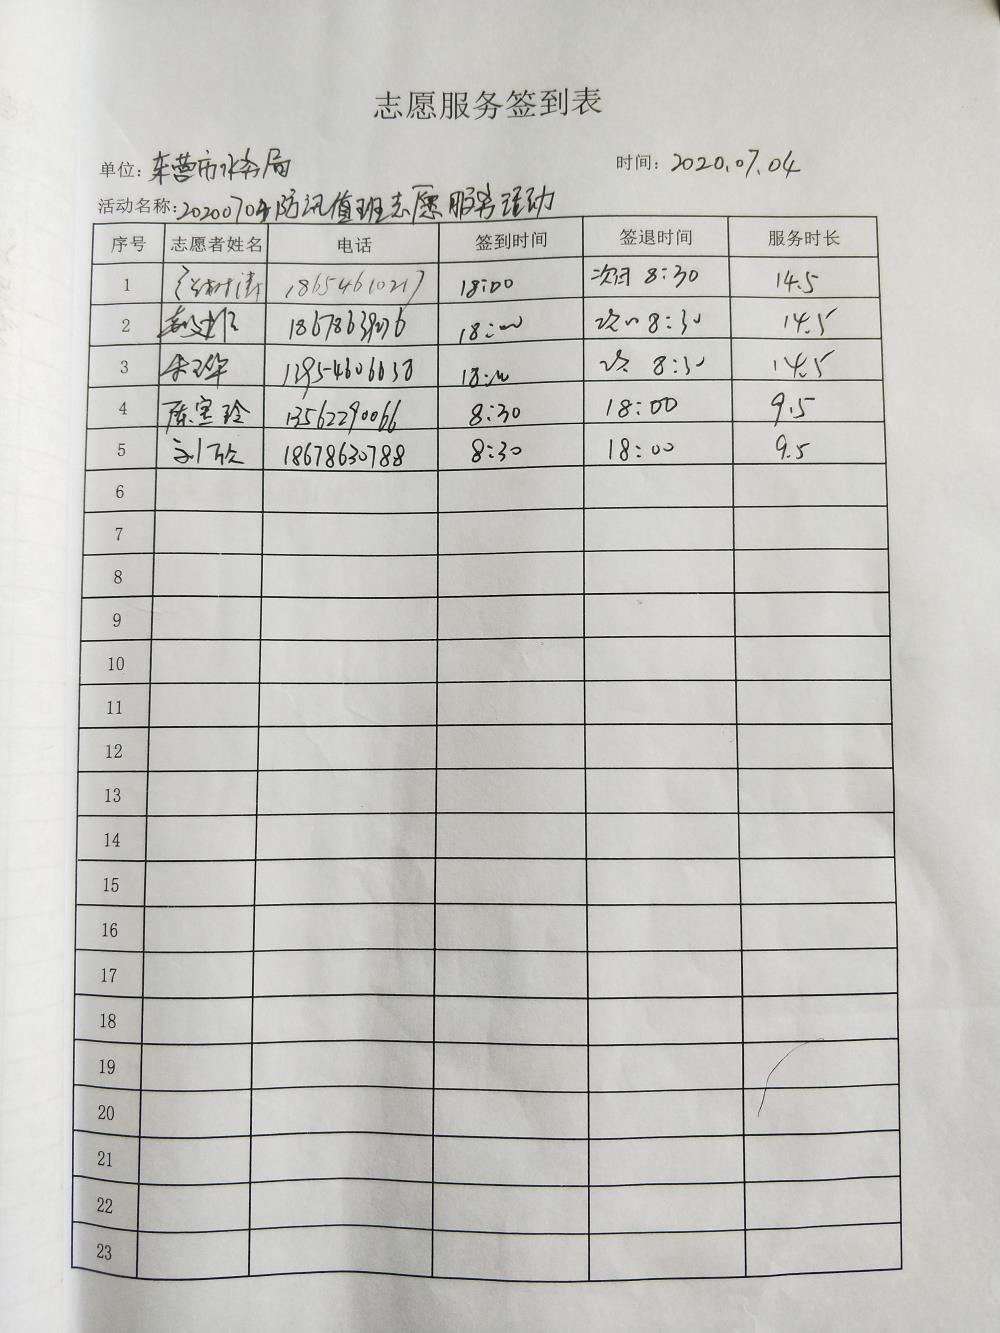 志愿服务签到表
单位：东营市水务局 时间：2020.07.04
活动名称：20200704防汛值班志愿服务活动
序号 志愿者姓名 电话 签到时间 签退时间 服务时长
1 18654610217 18:00 次日 8:30 14.5
2 18:00 8:30 14.5
3 18:00 次 8:30 14.5
4 陈宝玲 13562290066 8:30 18:00 9.5
5 刘欣 18678630788 8:30 18:00 9.5
6
7
8
9
10
11
12
13
14
15
16
17
18
19
20
21
22
23